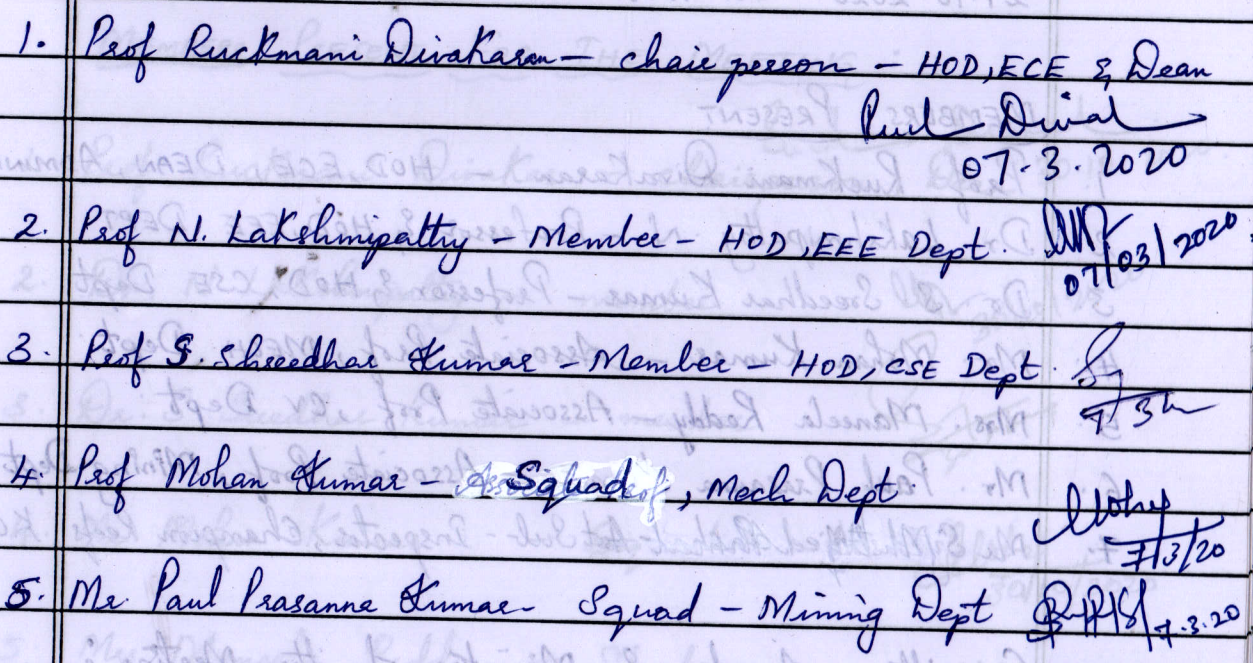 1. Prof Ruckmani Divakaran - chair person - HOD, ECE & Dean
07.3.2020
2. Prof N. Lakshmipathy - Member - HOD, EEE Dept. 07/03/2020
3. Prof S. Shreedhar Kumar - Member - HOD, CSE Dept.
4. Prof Mohan Kumar - Squad, Mech Dept.
7/3/20
5. Mr. Paul Prasanna Kumar - Squad - Mining Dept 7.3.20